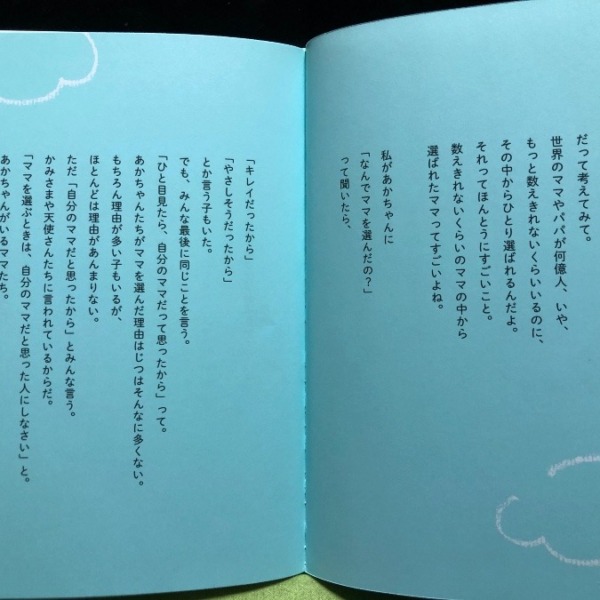 だって考えてみて。
世界のママやパパが何億人、いや、
もっと数えきれないくらいいるのに、
その中からひとり選ばれるんだよ。
それってほんとうにすごいこと。
数えきれないくらいのママの中から
選ばれたママってすごいよね。
私があかちゃんに
「なんでママを選んだの？」
って聞いたら、
「キレイだったから」
「やさしそうだったから」
とか言う子もいた。
でも、みんな最後に同じことを言う。
「ひと目見たら、自分のママだって思ったから」って。
あかちゃんたちがママを選んだ理由はじつはそんなに多くない。
もちろん理由が多い子もいるが、
ほとんどは理由があんまりない。
ただ「自分のママだと思ったから」とみんな言う。
かみさまや天使さんたちに言われているからだ。
「ママを選ぶときは、自分のママだと思った人にしなさい」と。
あかちゃんがいるママたち。